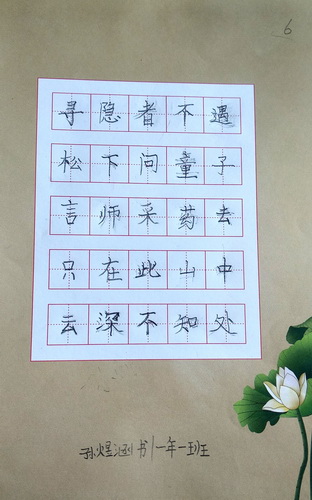 6
寻隐者不遇
松下问童子
言师采药去
只在此山中
云深不知处
孙煜涵书一年一班